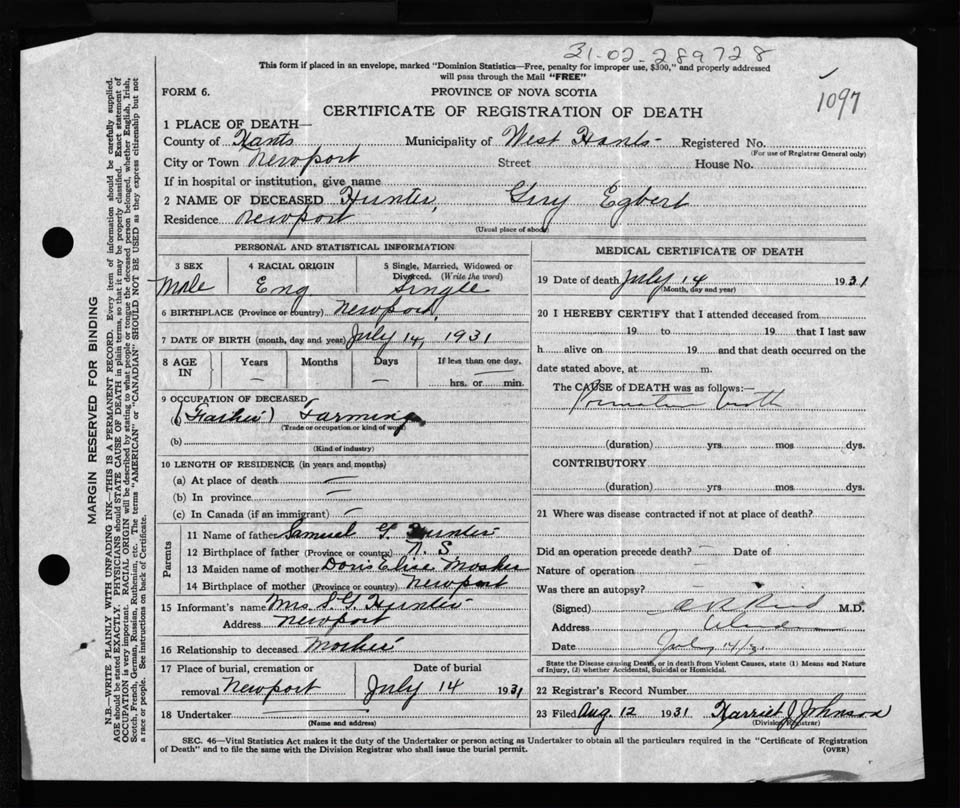 31-02-289728
This form if placed in an envelope, marked "Dominion Statistics—Free, penalty for improper use, $300," and properly addressed
will pass through the Mail "FREE"
FORM 6.
PROVINCE OF NOVA SCOTIA
1097
CERTIFICATE OF REGISTRATION OF DEATH
1 PLACE OF DEATH—
County of Hants Municipality of West Hants - Registered No.
(For use of Registrar General only)
City or Town Newport Street House No.
If in hospital or institution, give name
2 NAME OF DECEASED Hunter, Guy Egbert
Residence Newport
(Usual place of abode)
PERSONAL AND STATISTICAL INFORMATION
3 SEX Male
4 RACIAL ORIGIN Eng
5 Single, Married, Widowed or Divorced. (Write the word) Single
6 BIRTHPLACE (Province or country) Newport
7 DATE OF BIRTH (month, day and year) July 14, 1931
8 AGE IN Years — Months Days — If less than one day, — hrs. or min.
9 OCCUPATION OF DECEASED
(Father) Farming
(Trade or occupation or kind of work)
(b)
(Kind of industry)
10 LENGTH OF RESIDENCE (in years and months)
(a) At place of death —
(b) In province —
(c) In Canada (if an immigrant) —
Parents
11 Name of father Samuel G. Hunter
12 Birthplace of father (Province or country) N. S.
13 Maiden name of mother Doris Elise Mosher
14 Birthplace of mother (Province or country) Newport
15 Informant's name Mrs S. G. Hunter
Address Newport
16 Relationship to deceased Mother
17 Place of burial, cremation or removal Newport
Date of burial July 14 1931
18 Undertaker
(Name and address)
MEDICAL CERTIFICATE OF DEATH
19 Date of death July 14 1931
(Month, day and year)
20 I HEREBY CERTIFY that I attended deceased from
19 to 19 that I last saw
h alive on 19 and that death occurred on the
date stated above, at m.
The CAUSE of DEATH was as follows:—
Premature birth
(duration) yrs. mos. dys.
CONTRIBUTORY
(duration) yrs. mos. dys.
21 Where was disease contracted if not at place of death?
Did an operation precede death? — Date of
Nature of operation —
Was there an autopsy?
(Signed) M.D.
Address
Date July
State the Disease causing Death, or in death from Violent Causes, state (1) Means and Nature
of Injury, (2) whether Accidental, Suicidal or Homicidal.
22 Registrar's Record Number
23 Filed Aug. 12 1931 Harriet J. Johnson
(Division Registrar)
SEC. 46—Vital Statistics Act makes it the duty of the Undertaker or person acting as Undertaker to obtain all the particulars required in the "Certificate of Registration
of Death" and to file the same with the Division Registrar who shall issue the burial permit.
(OVER)
MARGIN RESERVED FOR BINDING
N.B.—WRITE PLAINLY WITH UNFADING INK—THIS IS A PERMANENT RECORD. Every item of information should be carefully supplied.
AGE should be stated EXACTLY. PHYSICIANS should STATE CAUSE OF DEATH in plain terms, so that it may be properly classified. Exact statement of
OCCUPATION is very important. RACIAL ORIGIN will be described by stating to what people or tongue the deceased person belonged, whether English, Irish,
Scotch, French, German, Russian, Ruthenian, etc. The terms "AMERICAN" or "CANADIAN" SHOULD NOT BE USED as they express citizenship but not
a race or people. See instructions on back of Certificate.